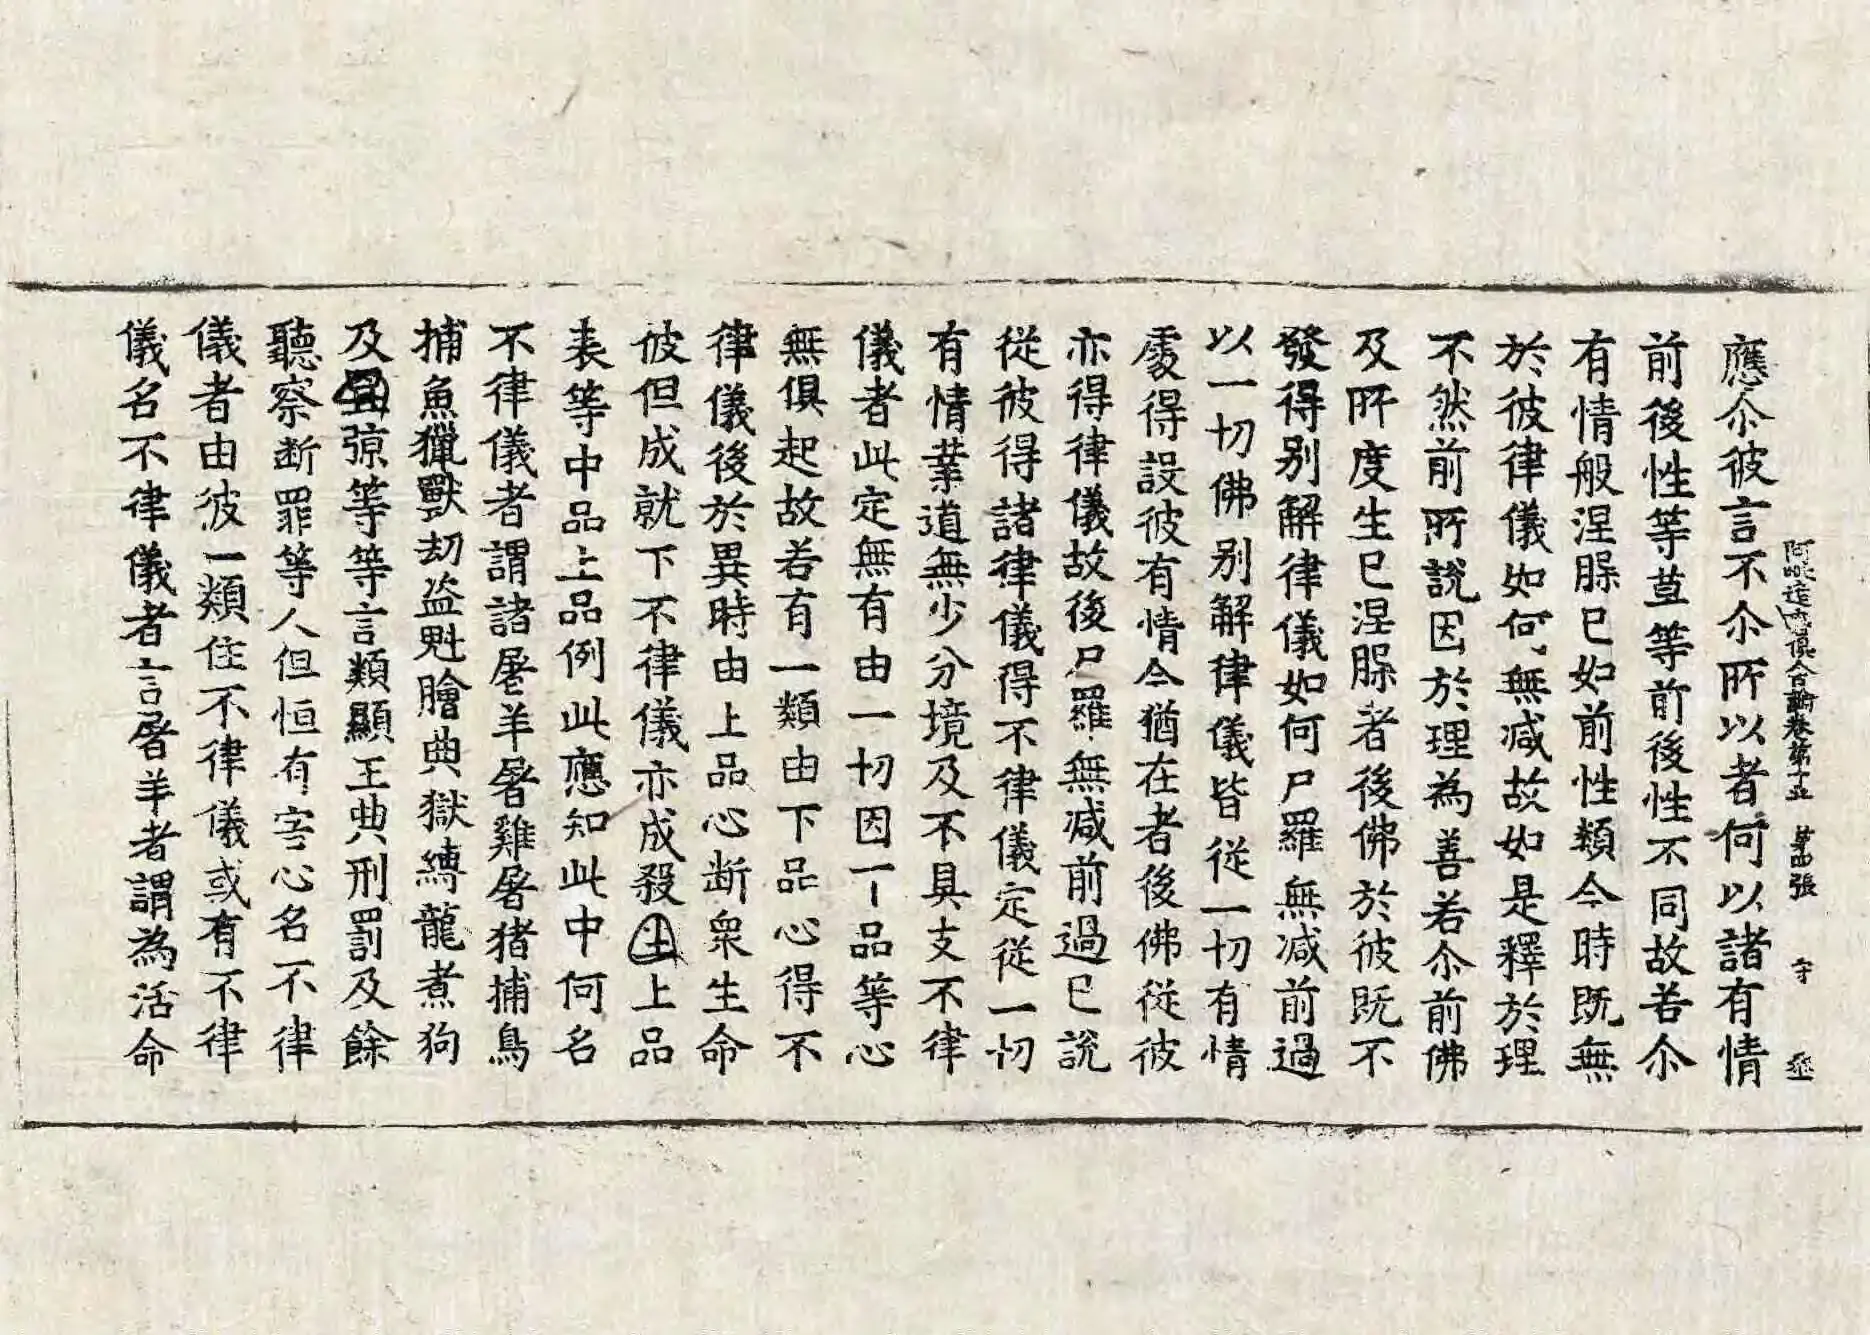 阿毗達磨俱舍論卷第十五 第四張 守
應尒彼言不尒所以者何以諸有情
前後性等草等前後性不同故若尒
有情般涅槃已如前性類今時既無
於彼律儀如何無減故如是釋於理
不然前所說因於理為善若尒前佛
及所度生已涅槃者後佛於彼既不
發得別解律儀如何尸羅無減前過
以一切佛別解律儀皆從一切有情
處得設彼有情今猶在者後佛從彼
亦得律儀故後尸羅無減前過已說
從彼得諸律儀得不律儀定從一切
有情業道無少分境及不具支不律
儀者此定無有由一切因下品等心
無俱起故若有一類由下品心得不
律儀後於異時由上品心斷衆生命
彼但成就下不律儀亦成殺生上品
表等中品上品例此應知此中何名
不律儀者謂諸屠羊屠雞屠猪捕鳥
捕魚獵獸劫盜魁膾典獄縛龍煮狗
及罝弶等等言類顯王典刑罰及餘
聽察斷罪等人但恒有害心名不律
儀者由彼一類住不律儀或有不律
儀名不律儀者言屠羊者謂為活命